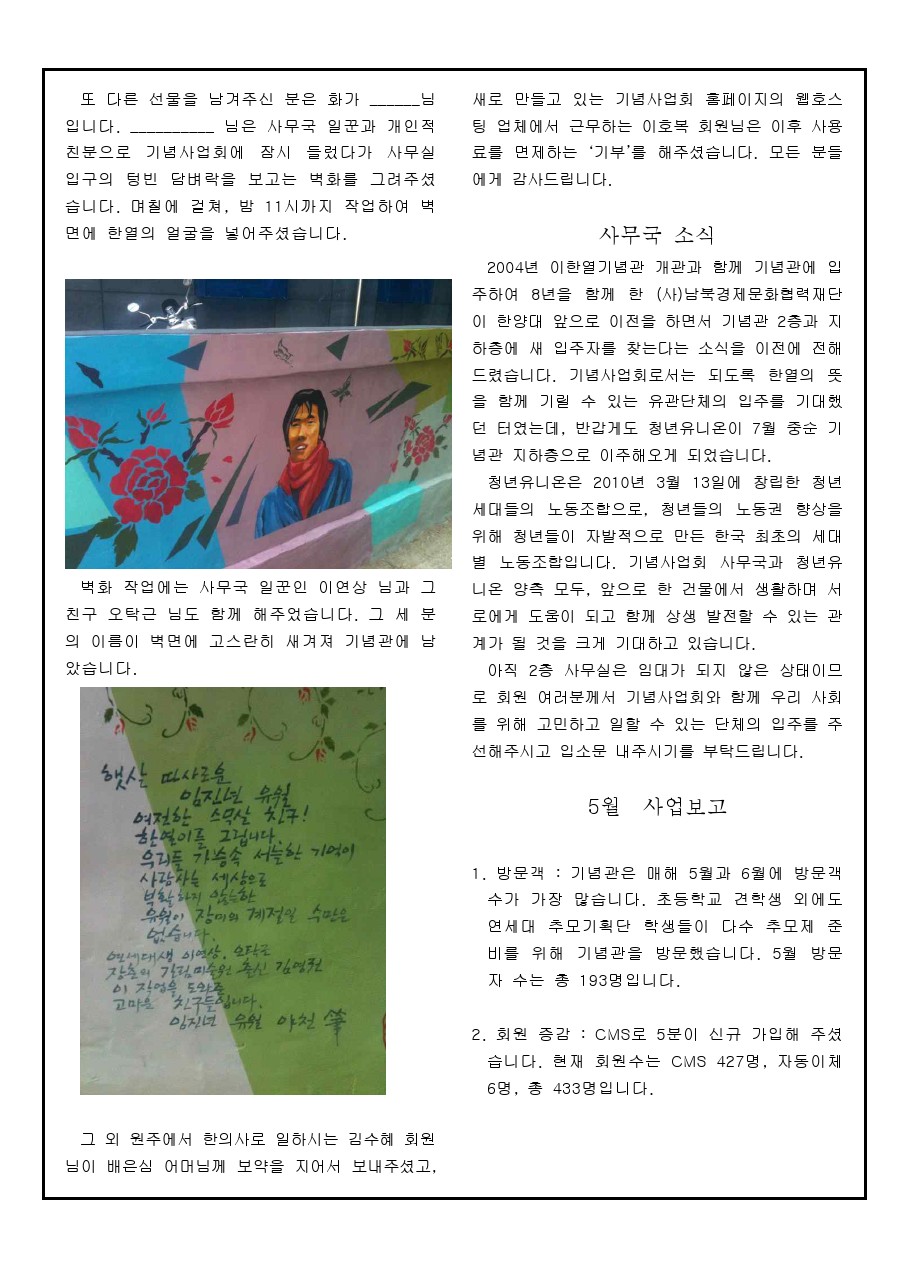 또 다른 선물을 남겨주신 분은 화가 ______님
입니다. __________ 님은 사무국 일꾼과 개인적
친분으로 기념사업회에 잠시 들렀다가 사무실
입구의 텅빈 담벼락을 보고는 벽화를 그려주셨
습니다. 며칠에 걸쳐, 밤 11시까지 작업하여 벽
면에 한열의 얼굴을 넣어주셨습니다.
벽화 작업에는 사무국 일꾼인 이연상 님과 그
친구 오탁근 님도 함께 해주었습니다. 그 세 분
의 이름이 벽면에 고스란히 새겨져 기념관에 남
았습니다.
햇살 따사로운
임진년 유월
여전한 스무살 친구!
한열이를 그립니다.
우리들 가슴속 서늘한 기억이
사람사는 세상으로
부활하지 않는한
유월이 장미의 계절일 수만은
없습니다.
연세대생 이연상, 오탁근
이 작업을 도와준
고마운 친구들입니다.
임진년 유월 야천 筆
그 외 원주에서 한의사로 일하시는 김수혜 회원
님이 배은심 어머님께 보약을 지어서 보내주셨고,
새로 만들고 있는 기념사업회 홈페이지의 웹호스
팅 업체에서 근무하는 이호복 회원님은 이후 사용
료를 면제하는 ‘기부’를 해주셨습니다. 모든 분들
에게 감사드립니다.
사무국 소식
2004년 이한열기념관 개관과 함께 기념관에 입
주하여 8년을 함께 한 (사)남북경제문화협력재단
이 한양대 앞으로 이전을 하면서 기념관 2층과 지
하층에 새 입주자를 찾는다는 소식을 이전에 전해
드렸습니다. 기념사업회로서는 되도록 한열의 뜻
을 함께 기릴 수 있는 유관단체의 입주를 기대했
던 터였는데, 반갑게도 청년유니온이 7월 중순 기
념관 지하층으로 이주해오게 되었습니다.
청년유니온은 2010년 3월 13일에 창립한 청년
세대들의 노동조합으로, 청년들의 노동권 향상을
위해 청년들이 자발적으로 만든 한국 최초의 세대
별 노동조합입니다. 기념사업회 사무국과 청년유
니온 양측 모두, 앞으로 한 건물에서 생활하며 서
로에게 도움이 되고 함께 상생 발전할 수 있는 관
계가 될 것을 크게 기대하고 있습니다.
아직 2층 사무실은 임대가 되지 않은 상태이므
로 회원 여러분께서 기념사업회와 함께 우리 사회
를 위해 고민하고 일할 수 있는 단체의 입주를 주
선해주시고 입소문 내주시기를 부탁드립니다.
5월 사업보고
1. 방문객 : 기념관은 매해 5월과 6월에 방문객
수가 가장 많습니다. 초등학교 견학생 외에도
연세대 추모기획단 학생들이 다수 추모제 준
비를 위해 기념관을 방문했습니다. 5월 방문
자 수는 총 193명입니다.
2. 회원 증감 : CMS로 5분이 신규 가입해 주셨
습니다. 현재 회원수는 CMS 427명, 자동이체
6명, 총 433명입니다.